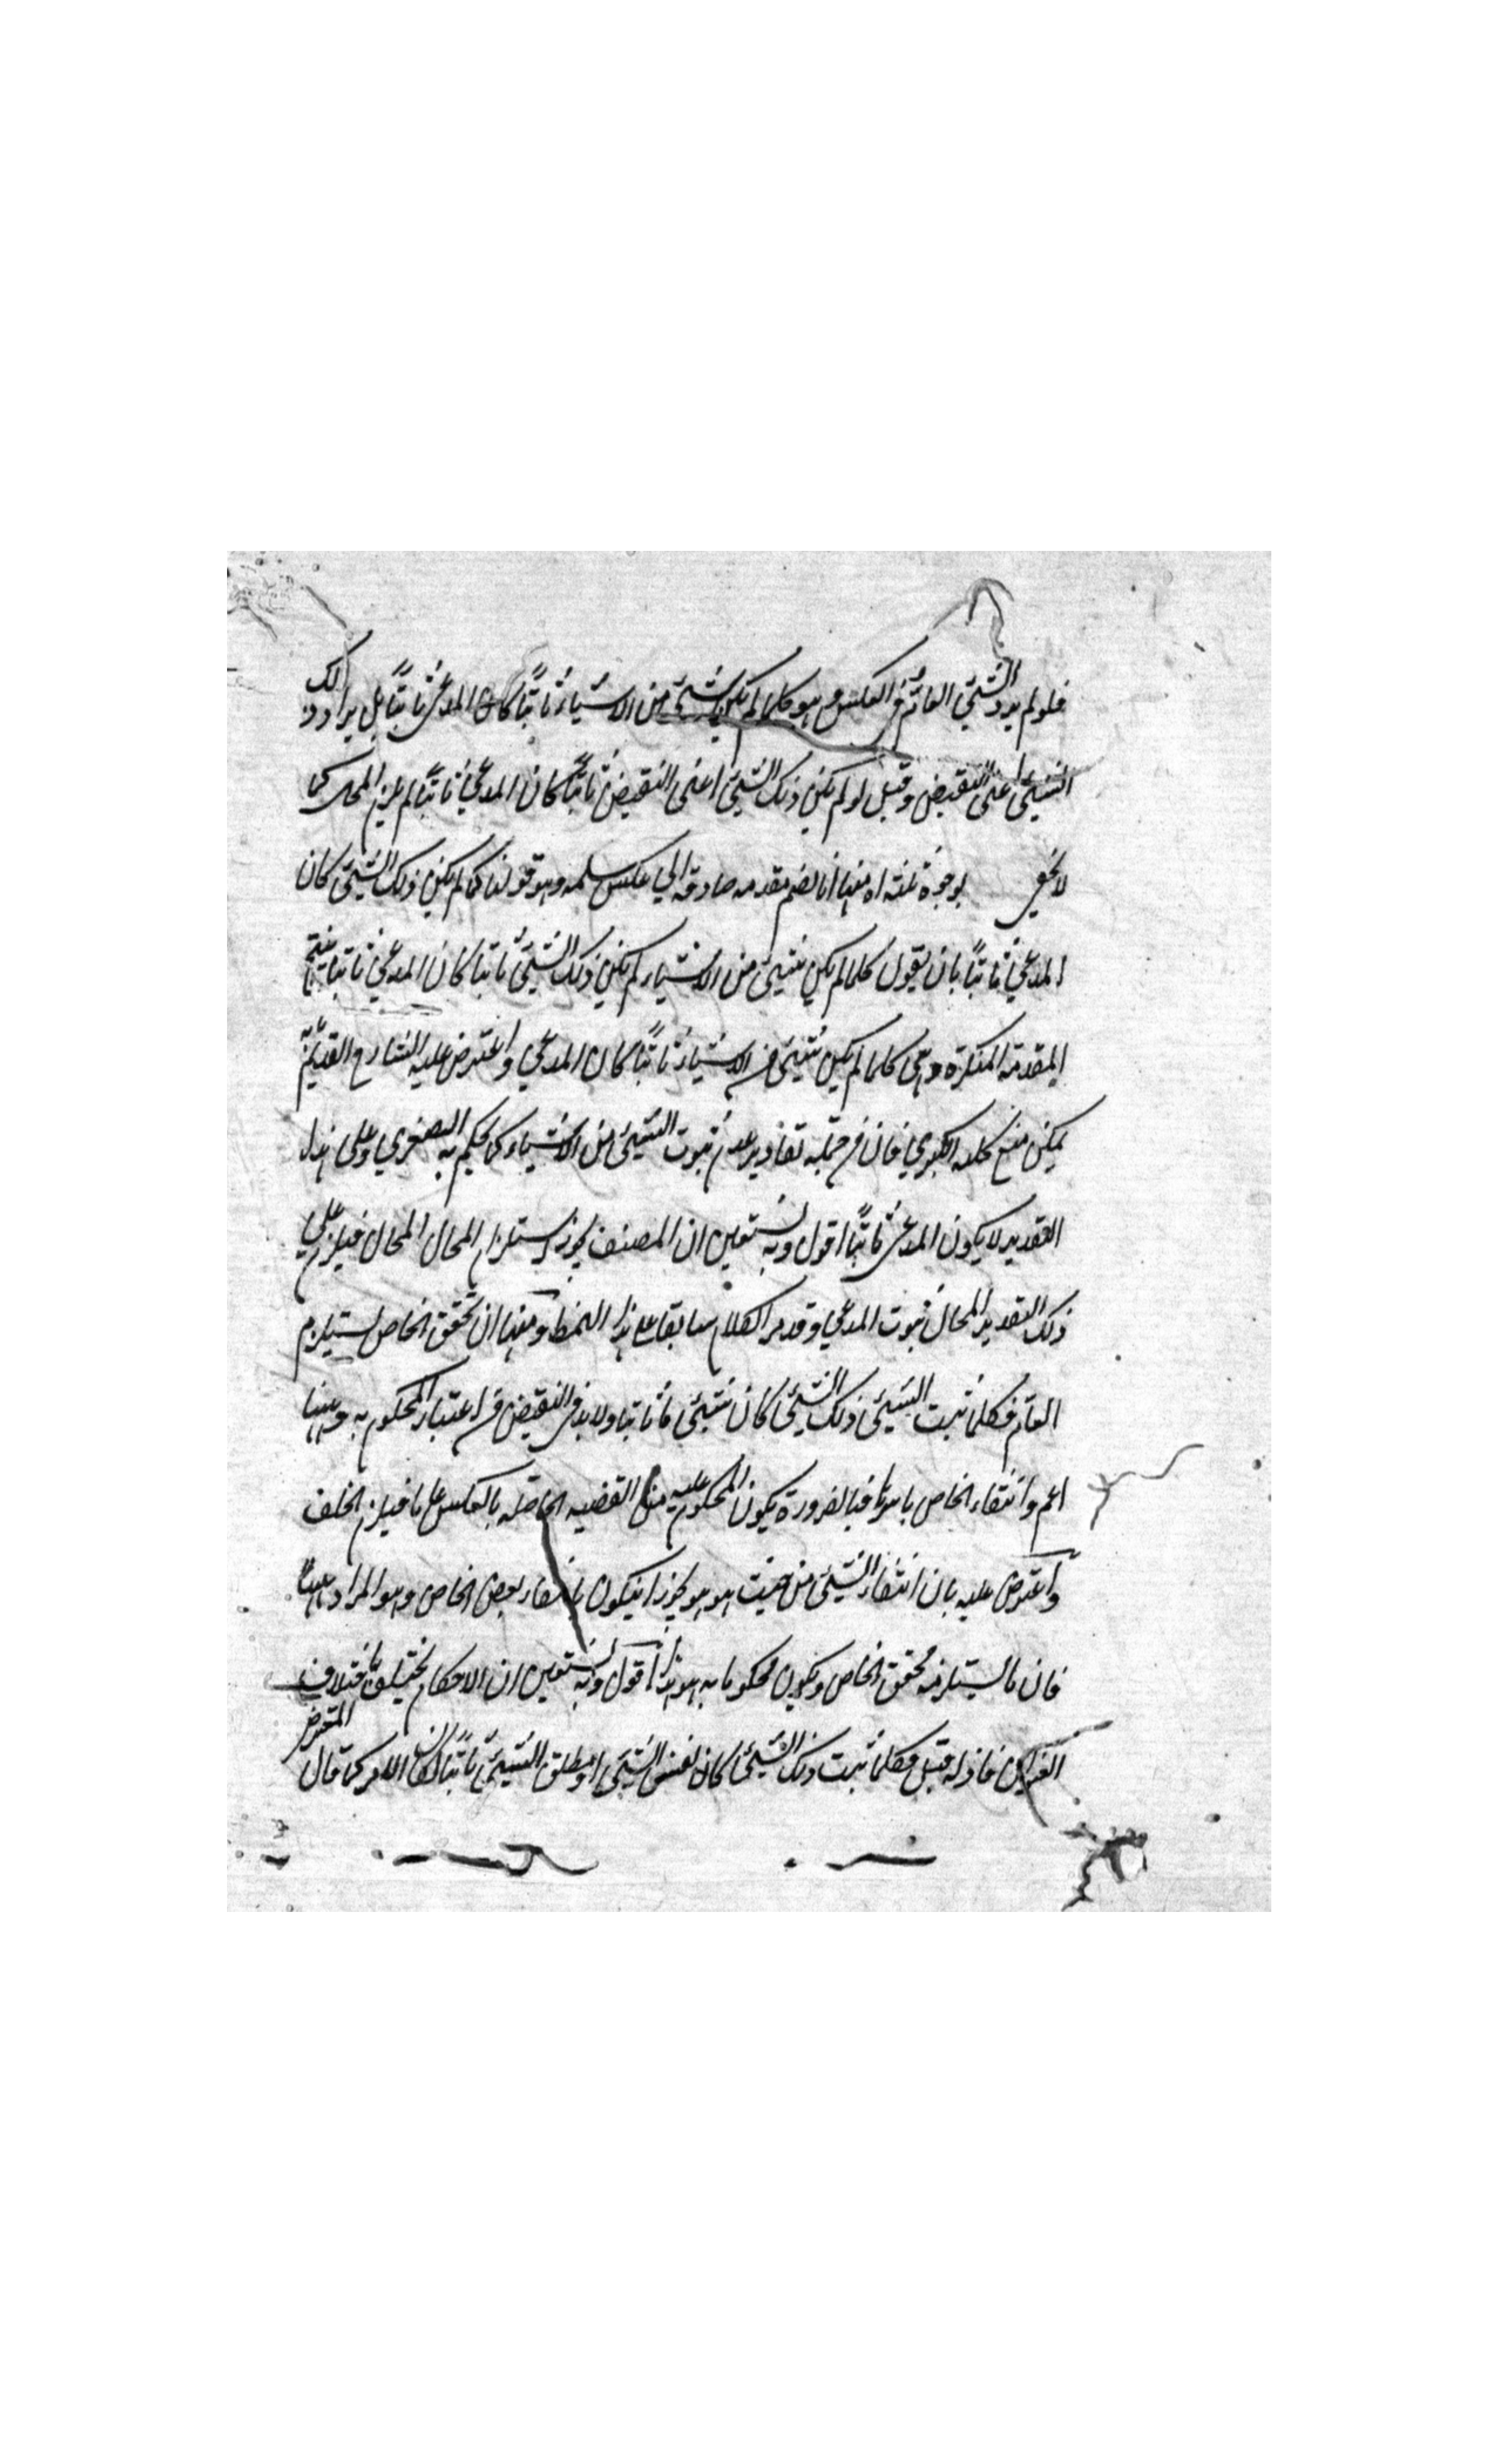 فلو لم يرد الشئي العام في العكس وهو كلما لم يكن شئي من الاشياء ثابتا كان المدعى ثابتا بل يراد ذلك
الشئي اعني النقيض وقيل لو لم يكن ذلك الشئي اعني النقيض ثابتا كان المدعي ثابتا لم يلزم المحال كما
لا يخفى بوجوه ثلثه اه منها انا نضم مقدمه صادقه الي عكس سلمه وهو قولنا كلما لم يكن ذلك الشئي كان
المدعي ثابتا بان يقول كلما لم يكن شئي من الاشياء لم يكن ذلك الشئي ثابتا كان المدعي ثابتا ينتج
المقدمة المنكرة وهي كلما لم يكن شئي من الاشياء ثابتا كان المدعي واعترض عليه الشارح القديم بانه
يمكن منع كليه الكبري فان من جملة تقادير عدم ثبوت الشئي من الاشياء كما يحكم به الصغري وعلى هذا
التقدير لا يكون المدعى ثابتا اقول وبه نستعين ان المصنف يجوز استلزام المحال المحال فيلزم على
ذلك التقدير المحال ثبوت المدعي وقد مر الكلام سابقا على هذا النمط ومنها ان تحقق الخاص يستلزم
العام فكلما ثبت الشئي ذلك الشئي كان شئي ما ثابتا ولا بد في النقيض من اعتبار المحكوم به وههنا
اعم وانتفاء الخاص باسرنا فبالضرورة يكون المحكوم عليه من القضيه الحاصله بالعكس عاما فيلزم الخلف
واعترض عليه بان انتفاء الشئي من حيث هو هو يجوز ان يكون بانتفاء بعض الخاص وهو المراد ههنا
فان ما يستلزمه تحقق الخاص ويكون محكوما به هو هذا اقول وبه نستعين ان الاحكام تختلف باختلاف
العنوان فاذا قيل فكلما ثبت ذلك الشئي كان نفس الشئي او مطلق الشئي ثابتا لكان الامر كما قال المعترض